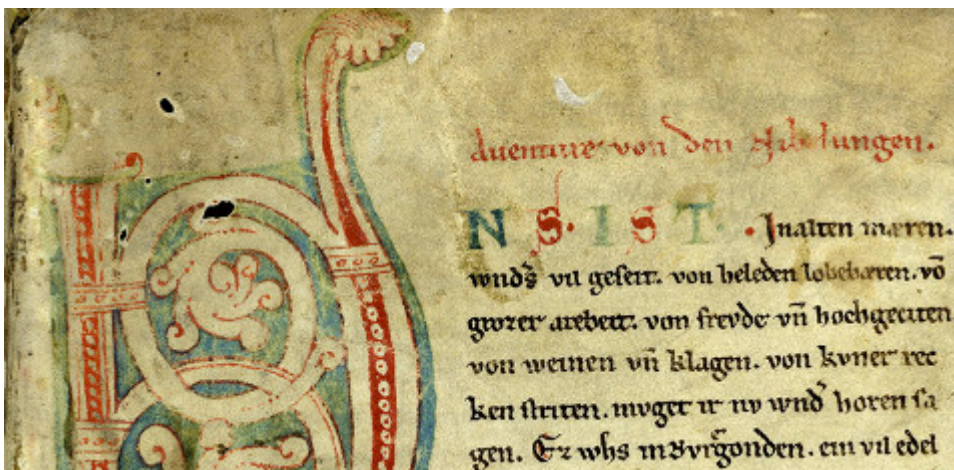 Auenture von den Nibelungen.
NS. IST. . In alten mæren.
wnds̄ vil geseit. von heleden lobebæren. võ
grozer arebeit. von frevde vñ hochgeciten
von weinen vñ klagen. von kvner rec
ken striten. mvget ir nv wnd̄ horen sa
gen. Ez whs in Bvrgonden. ein vil edel